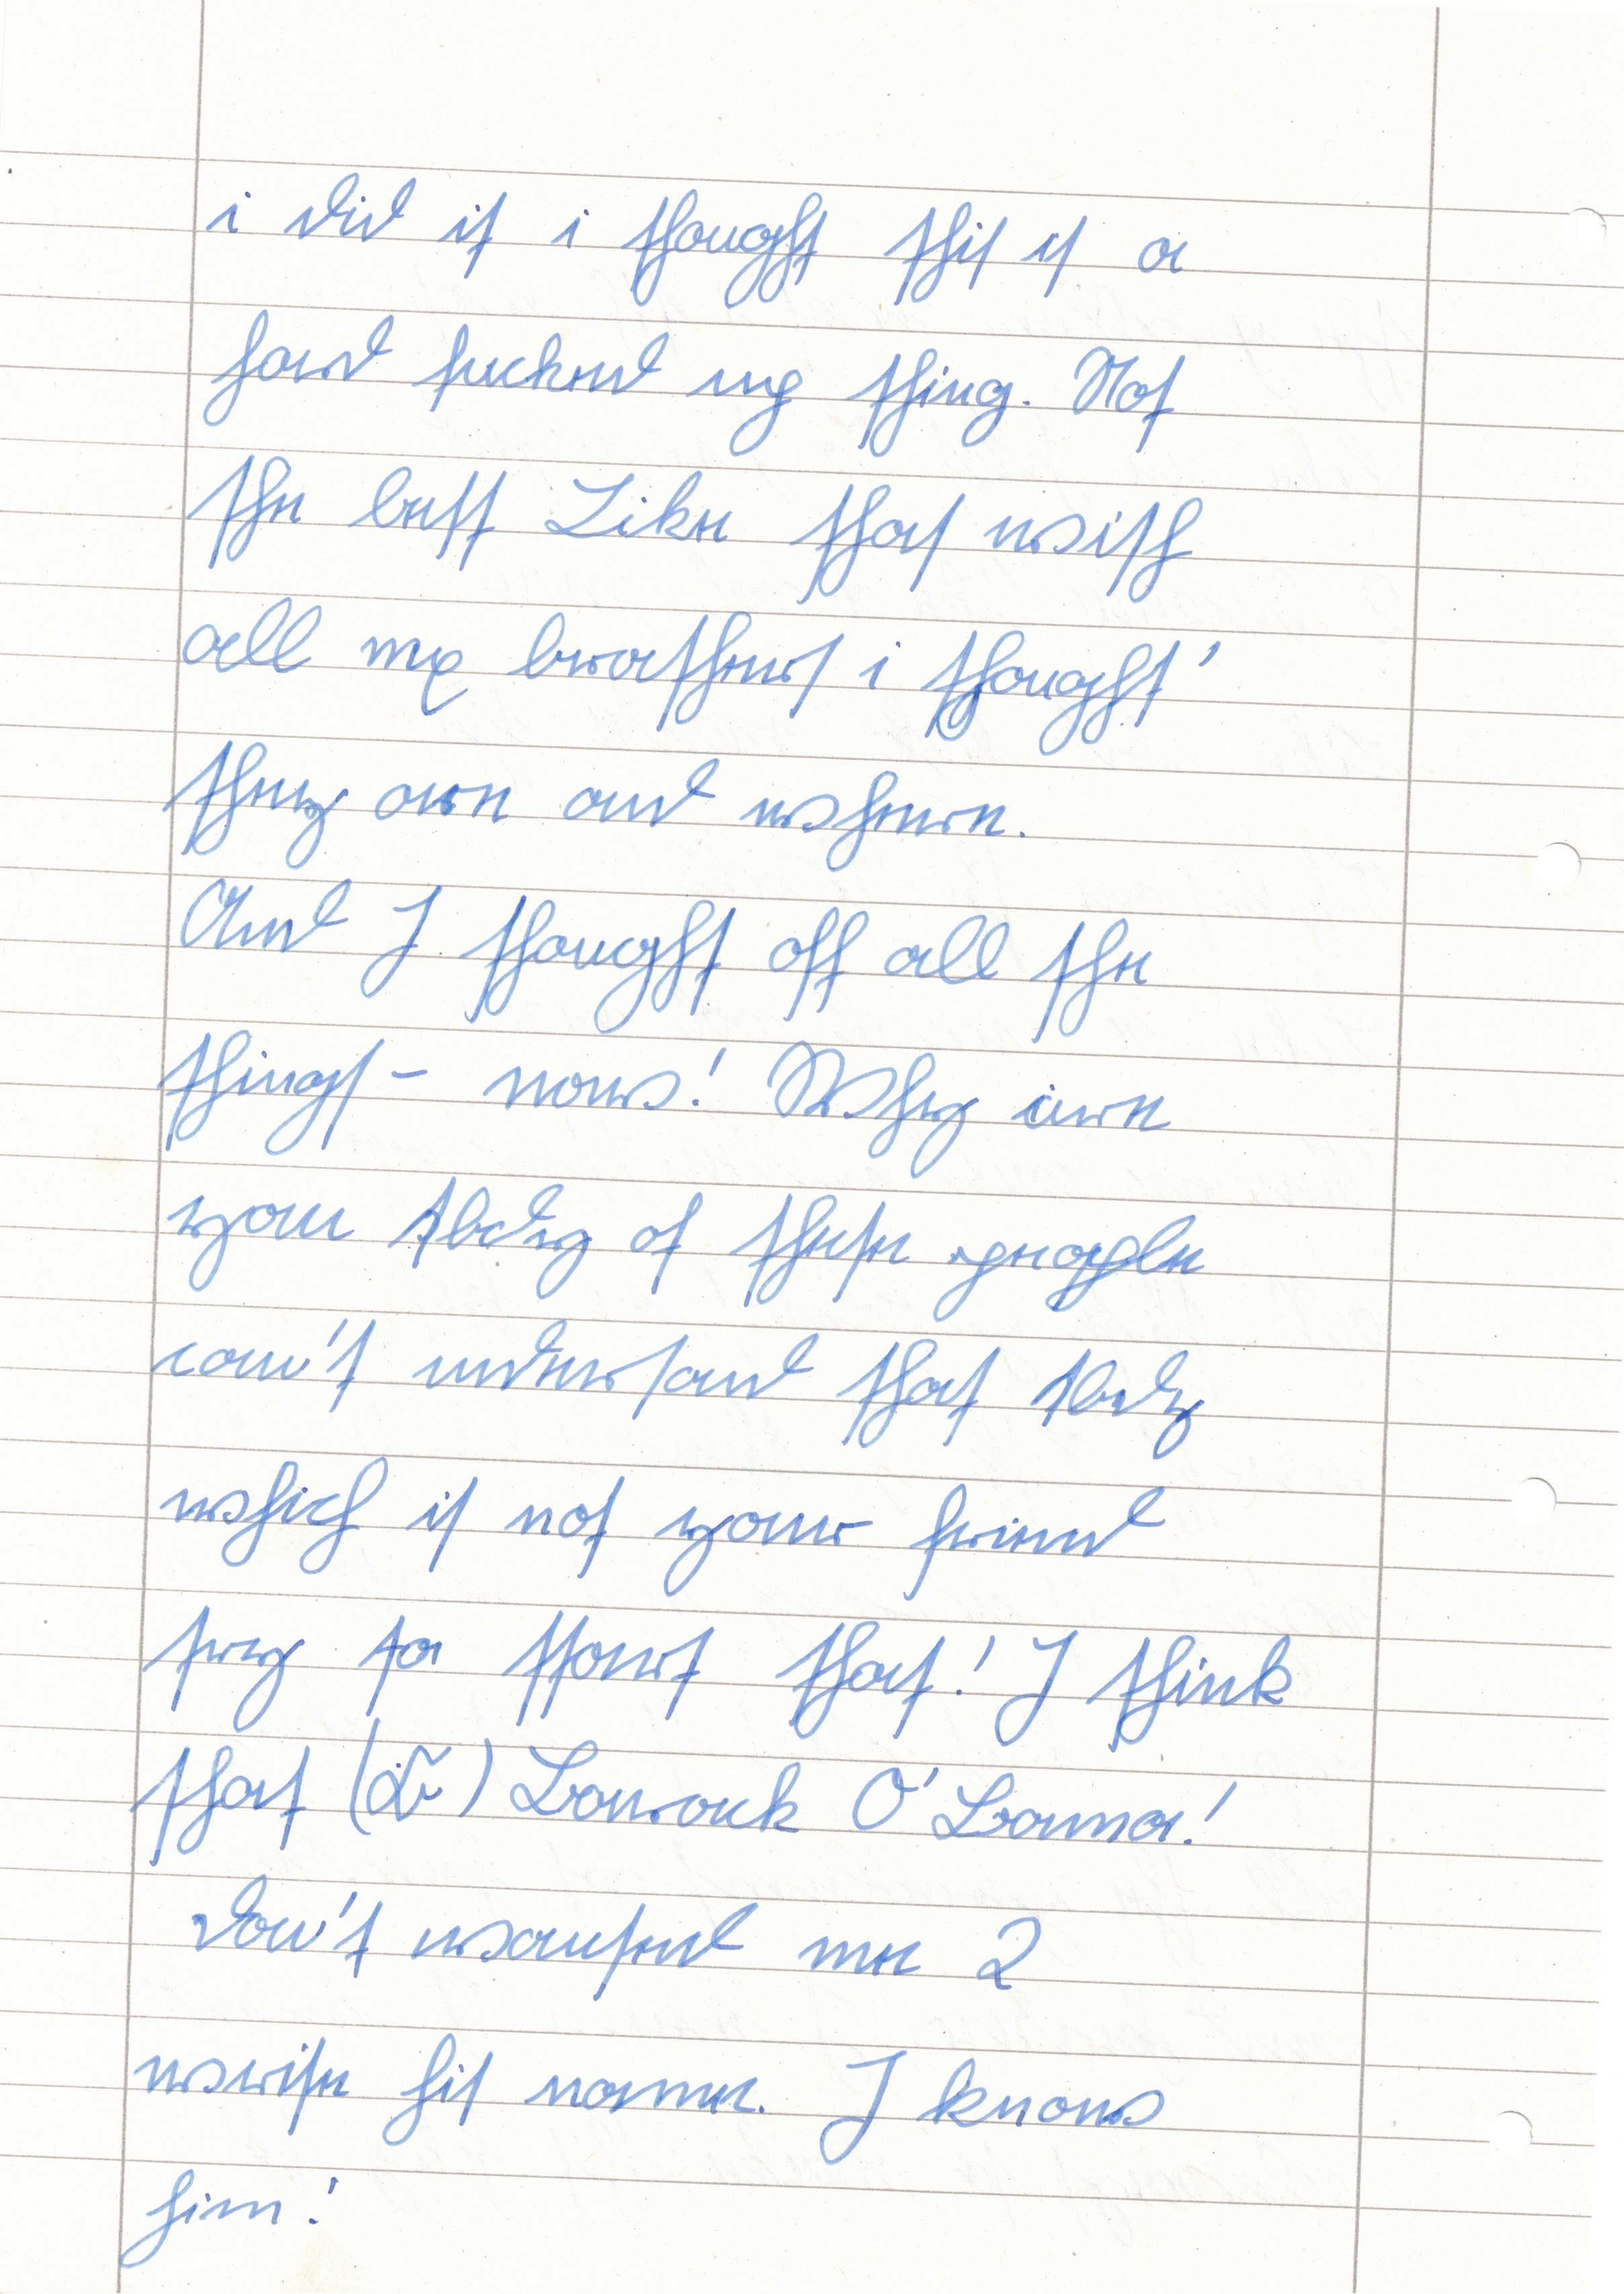 i did it i thought this is a
hard fucked up thing. Not
the best Like that with
all my brothers i thought'
they are and where.
And I thought off all the
things - now! Why are
you sbdy of these people
can't undersand that sbdy
which is not your friend
try to start that! I think
that Barrack O'Bama!
don't wanted me 2
write his name. I know
him!